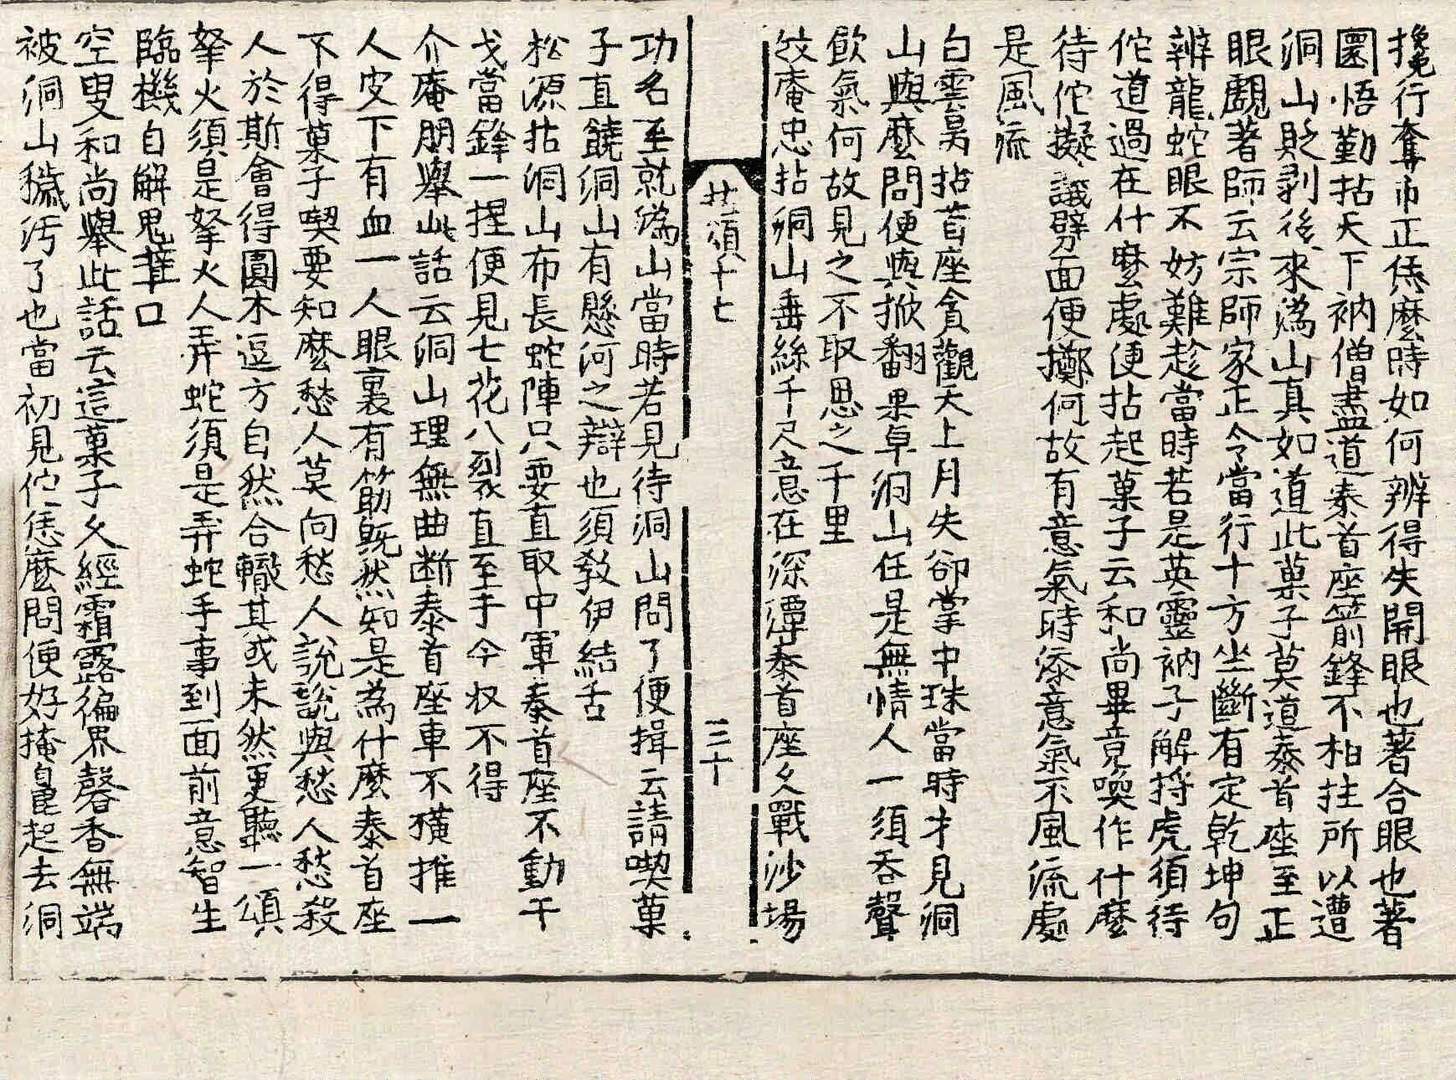 攙行奪市正恁麼時如何辨得失開眼也著合眼也著
圜悟勤拈天下衲僧盡道泰首座箭鋒不相拄所以遭
洞山貶剥後來溈山真如道此菓子莫道泰首座至正
眼覷著師云宗師家正令當行十方坐斷有定乾坤句
辨龍蛇眼不妨難趁當時若是英靈衲子解捋虎須待
佗道過在什麼處便拈起菓子云和尚畢竟喚作什麼
待佗擬議劈面便擲何故有意氣時添意氣不風流處
是風流
白雲昺拈首座貪觀天上月失卻掌中珠當時才見洞
山與麼問便與掀翻果卓洞山任是無情人一須吞聲
飲氣何故見之不取思之千里
或庵忠拈洞山垂絲千尺意在深潭泰首座久戰沙場
拈頌十七
三十
功名至就溈山當時若見待洞山問了便揖云請喫菓
子直饒洞山有懸河之辯也須教伊結舌
松源拈洞山布長蛇陣只要直取中軍泰首座不動干
戈當鋒一捏便見七花八裂直至于今收不得
介庵朋舉此話云洞山理無曲断泰首座車不獚推一
人皮下有血一人眼裏有筋既然知是為什麼泰首座
不得菓子喫要知麼愁人莫向愁人說說與愁人愁殺
人於斯會得圓木逗方自然合轍其或未然更聽一頌
拏火須是拏火人弄蛇須是弄蛇手事到面前意智生
臨機自解鬼挵口
空叟和尚舉此話云這菓子久經霜露徧界磬香無端
被洞山穢汚了也當初見佗恁麼問便好掩鼻起去洞